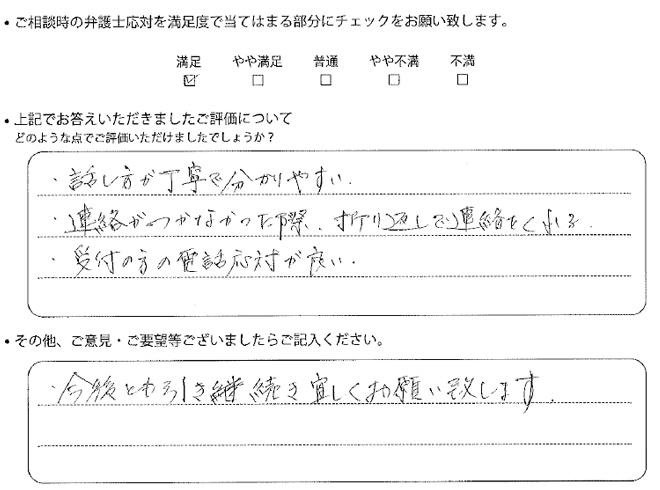 • ご相談時の弁護士応対を満足度で当てはまる部分にチェックをお願い致します。
満足 やや満足 普通 やや不満 不満
☑ ☐ ☐ ☐ ☐
• 上記でお答えいただきましたご評価について
どのような点でご評価いただけましたでしょうか？
・話し方が丁寧で分かりやすい.
・連絡がつかなかった際、折り返しで連絡をくれる.
・受付の方の電話応対が良い.
• その他、ご意見・ご要望等ございましたらご記入ください。
・今後とも引き継続き宜しくお願い致します.